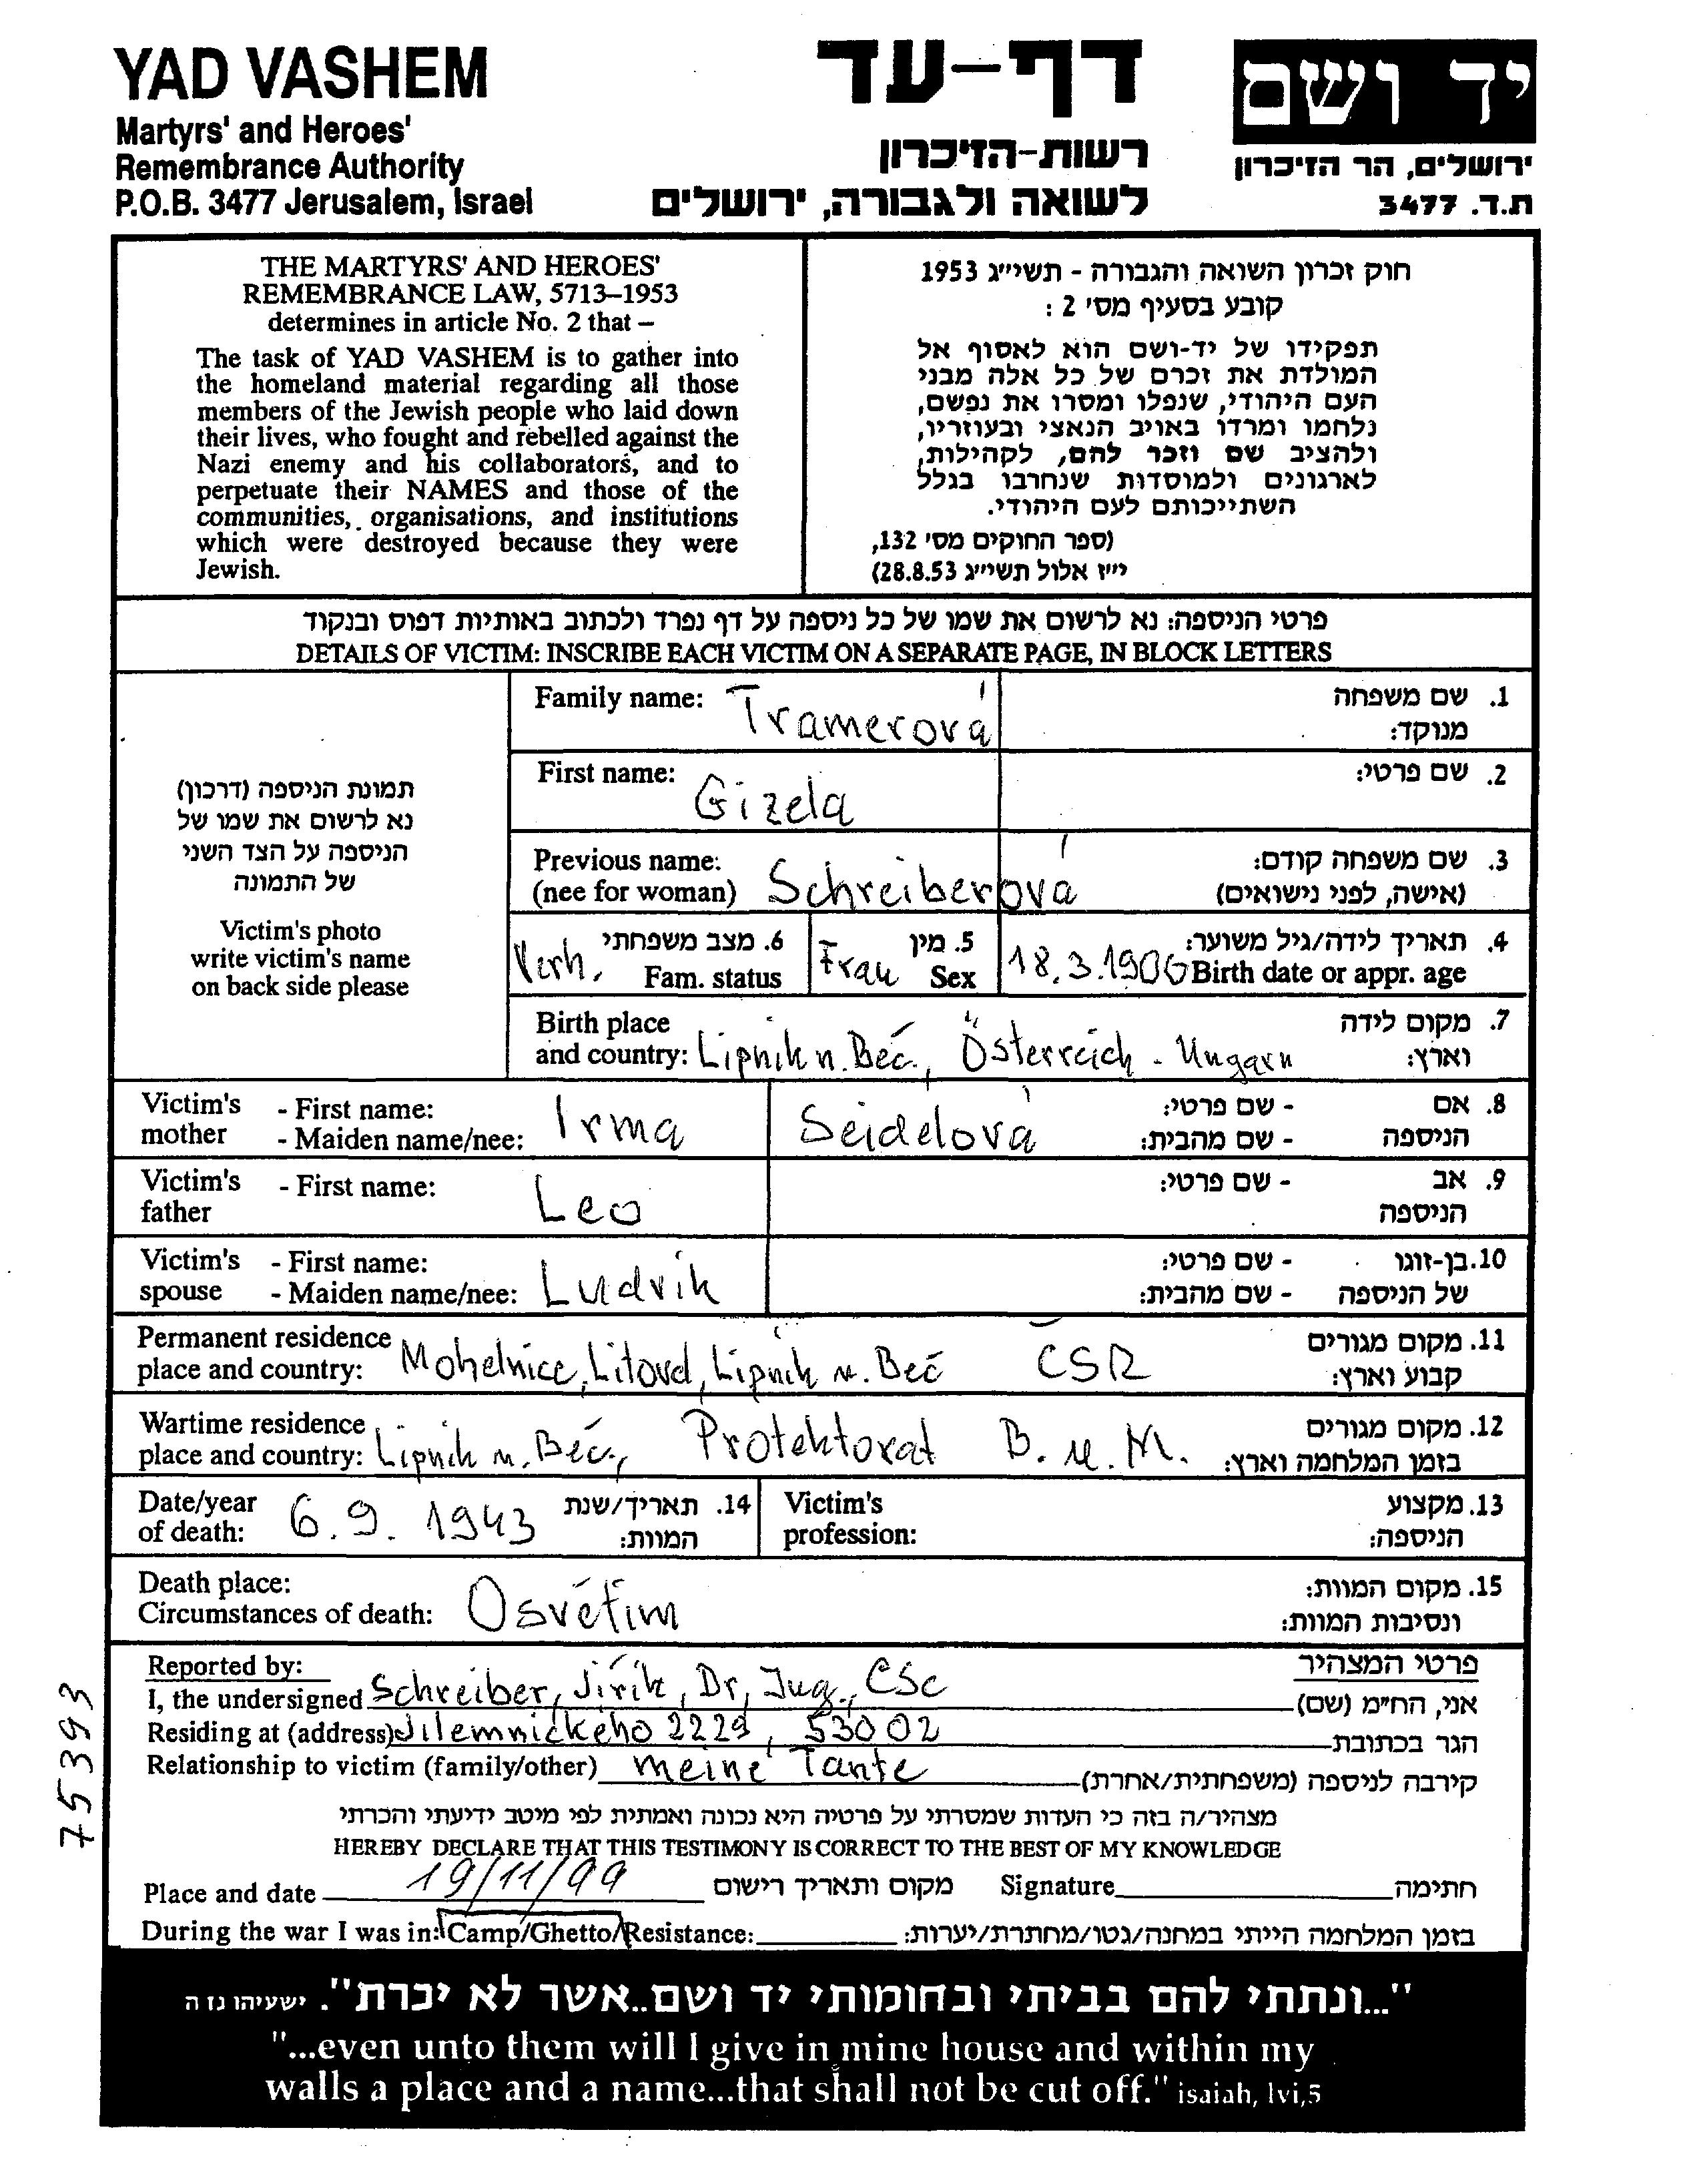 YAD VASHEM
Martyrs' and Heroes'
Remembrance Authority
P.O.B. 3477 Jerusalem, Israel
דף-עד
רשות-הזיכרון
לשואה ולגבורה, ירושלים
יד ושם
ירושלים, הר הזיכרון
ת.ד. 3477
THE MARTYRS' AND HEROES'
REMEMBRANCE LAW, 5713–1953
determines in article No. 2 that –
The task of YAD VASHEM is to gather into
the homeland material regarding all those
members of the Jewish people who laid down
their lives, who fought and rebelled against the
Nazi enemy and his collaborators, and to
perpetuate their NAMES and those of the
communities, organisations, and institutions
which were destroyed because they were
Jewish.
חוק זכרון השואה והגבורה - תשי״ג 1953
קובע בסעיף מס' 2 :
תפקידו של יד-ושם הוא לאסוף אל
המולדת את זכרם של כל אלה מבני
העם היהודי, שנפלו ומסרו את נפשם,
נלחמו ומרדו באויב הנאצי ובעוזריו,
ולהציב שם וזכר להם, לקהילות,
לארגונים ולמוסדות שנחרבו בגלל
השתייכותם לעם היהודי.
(ספר החוקים מס' 132,
י״ז אלול תשי״ג 28.8.53)
פרטי הניספה: נא לרשום את שמו של כל ניספה על דף נפרד ולכתוב באותיות דפוס ובנקוד
DETAILS OF VICTIM: INSCRIBE EACH VICTIM ON A SEPARATE PAGE, IN BLOCK LETTERS
תמונת הניספה (דרכון)
נא לרשום את שמו של
הניספה על הצד השני
של התמונה
Victim's photo
write victim's name
on back side please
Family name: Tramerová 1. שם משפחה
מנוקד:
First name: Gizela 2. שם פרטי:
Previous name: 3. שם משפחה קודם:
(nee for woman) Schreiberová (אישה, לפני נישואים)
Verh. 6. מצב משפחתי Fam. status
Frau 5. מין Sex
18.3.1906 4. תאריך לידה/גיל משוער: Birth date or appr. age
Birth place 7. מקום לידה
and country: Lipník n. Beč., Österreich - Ungarn וארץ:
Victim's - First name: Irma Seidelová - שם פרטי: 8. אם
mother - Maiden name/nee: - שם מהבית: הניספה
Victim's - First name: Leo - שם פרטי: 9. אב
father הניספה
Victim's - First name: Ludvík - שם פרטי: 10. בן-זוגו
spouse - Maiden name/nee: - שם מהבית: של הניספה
Permanent residence 11. מקום מגורים
place and country: Mohelnice, Litovel, Lipník n. Beč ČSR קבוע וארץ:
Wartime residence 12. מקום מגורים
place and country: Lipník n. Beč., Protektorat B. u. M. בזמן המלחמה וארץ:
Date/year 6.9.1943 14. תאריך/שנת
of death: המוות:
Victim's 13. מקצוע
profession: הניספה:
Death place: 15. מקום המוות:
Circumstances of death: Osvětim ונסיבות המוות:
Reported by: פרטי המצהיר
I, the undersigned Schreiber, Jiřík, Dr, Ing., CSc אני, הח״מ (שם)
Residing at (address) Jilemnického 2229, 53002 הגר בכתובת
Relationship to victim (family/other) meine Tante קירבה לניספה (משפחתית/אחרת)
מצהיר/ה בזה כי העדות שמסרתי על פרטיה היא נכונה ואמתית לפי מיטב ידיעתי והכרתי
HEREBY DECLARE THAT THIS TESTIMONY IS CORRECT TO THE BEST OF MY KNOWLEDGE
Place and date 19/11/99 מקום ותאריך רישום Signature חתימה
During the war I was in: Camp/Ghetto/Resistance: בזמן המלחמה הייתי במחנה/גטו/מחתרת/יערות:
"...ונתתי להם בביתי ובחומותי יד ושם..אשר לא יכרת". ישעיהו נו ה
"...even unto them will I give in mine house and within my
walls a place and a name...that shall not be cut off." isaiah, lvi,5
75393